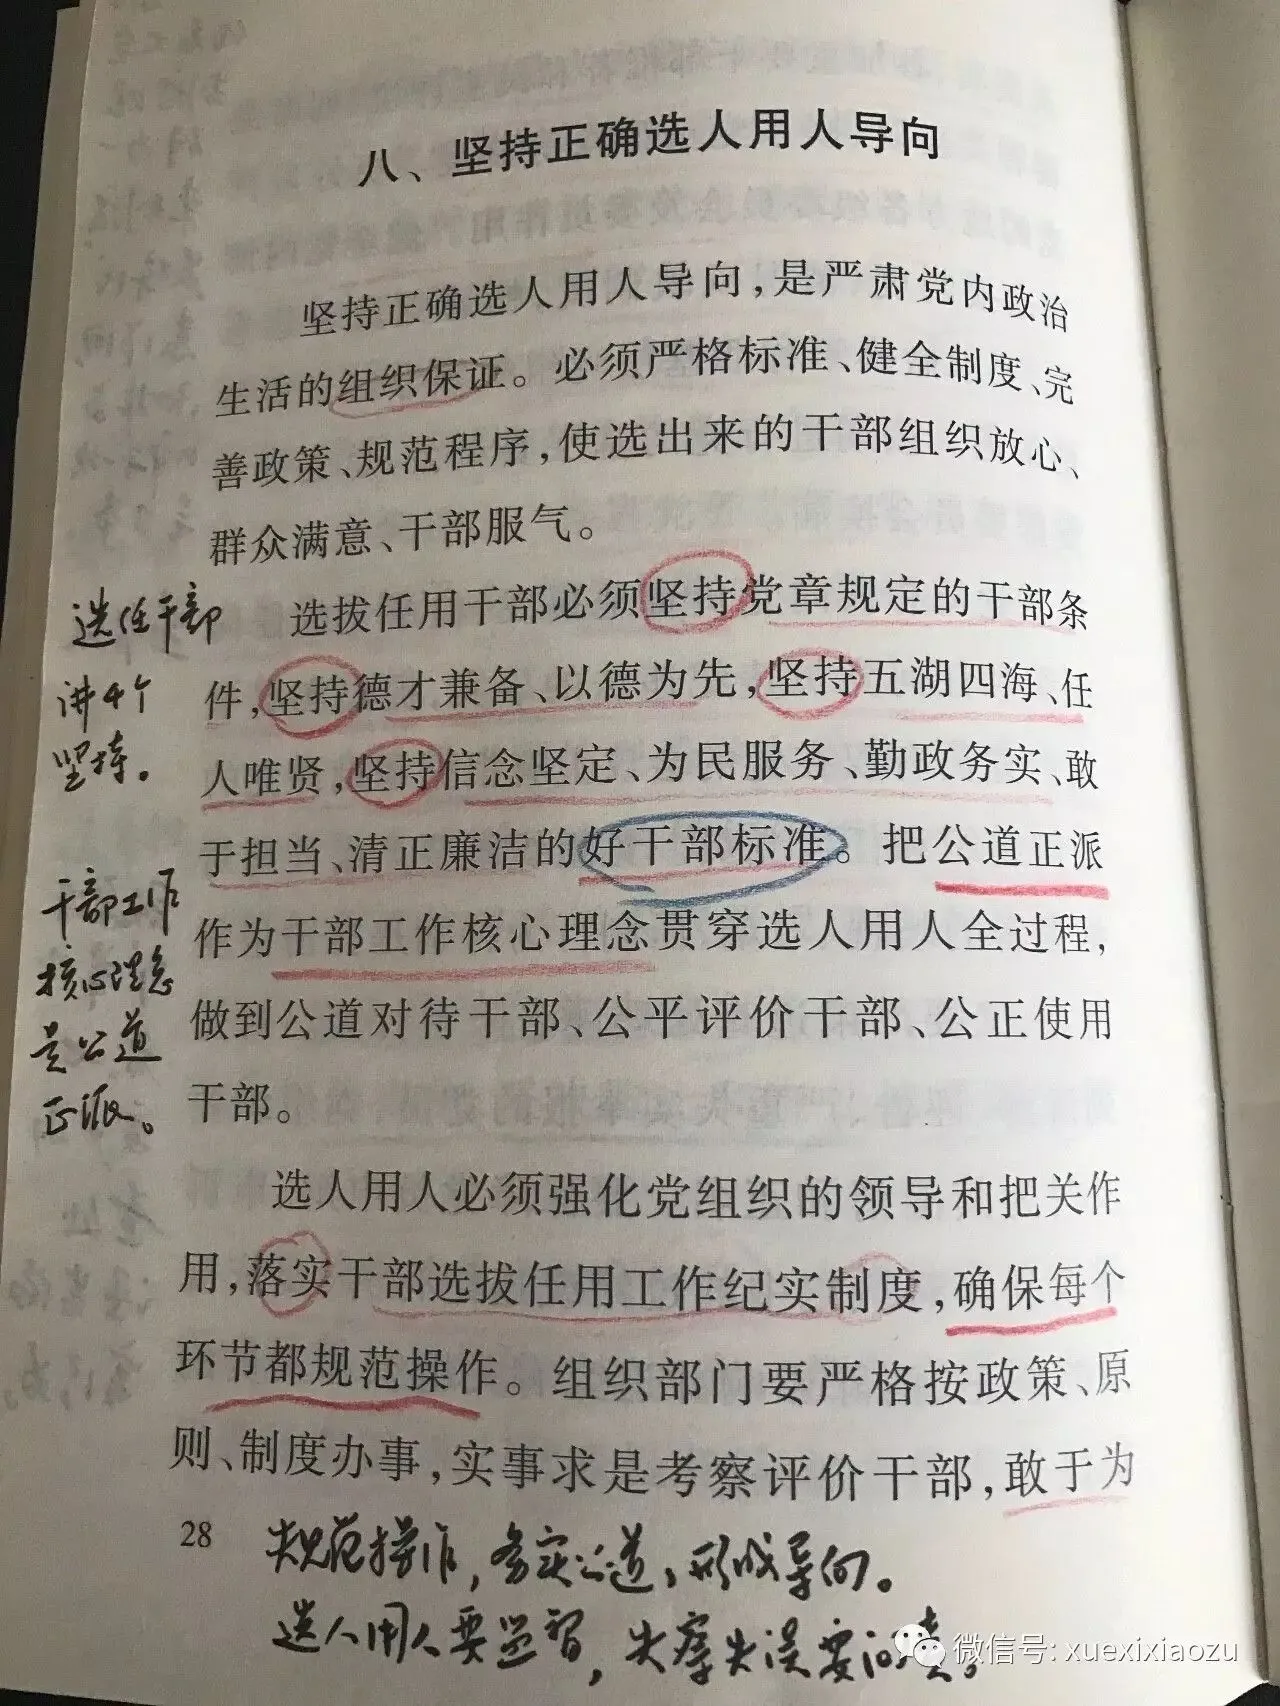 八、坚持正确选人用人导向
坚持正确选人用人导向，是严肃党内政治
生活的组织保证。必须严格标准、健全制度、完
善政策、规范程序，使选出来的干部组织放心、
群众满意、干部服气。
选拔任用干部必须坚持党章规定的干部条
件，坚持德才兼备、以德为先，坚持五湖四海、任
人唯贤，坚持信念坚定、为民服务、勤政务实、敢
于担当、清正廉洁的好干部标准。把公道正派
作为干部工作核心理念贯穿选人用人全过程，
做到公道对待干部、公平评价干部、公正使用
干部。
选人用人必须强化党组织的领导和把关作
用，落实干部选拔任用工作纪实制度，确保每个
环节都规范操作。组织部门要严格按政策、原
则、制度办事，实事求是考察评价干部，敢于为
28
选任干部
讲4个
坚持。
干部工作
核心理念
是公道
正派。
规范操作，务实公道，形成导向。
选人用人要监督，失察失误要问责。
微信号: xuexixiaozu